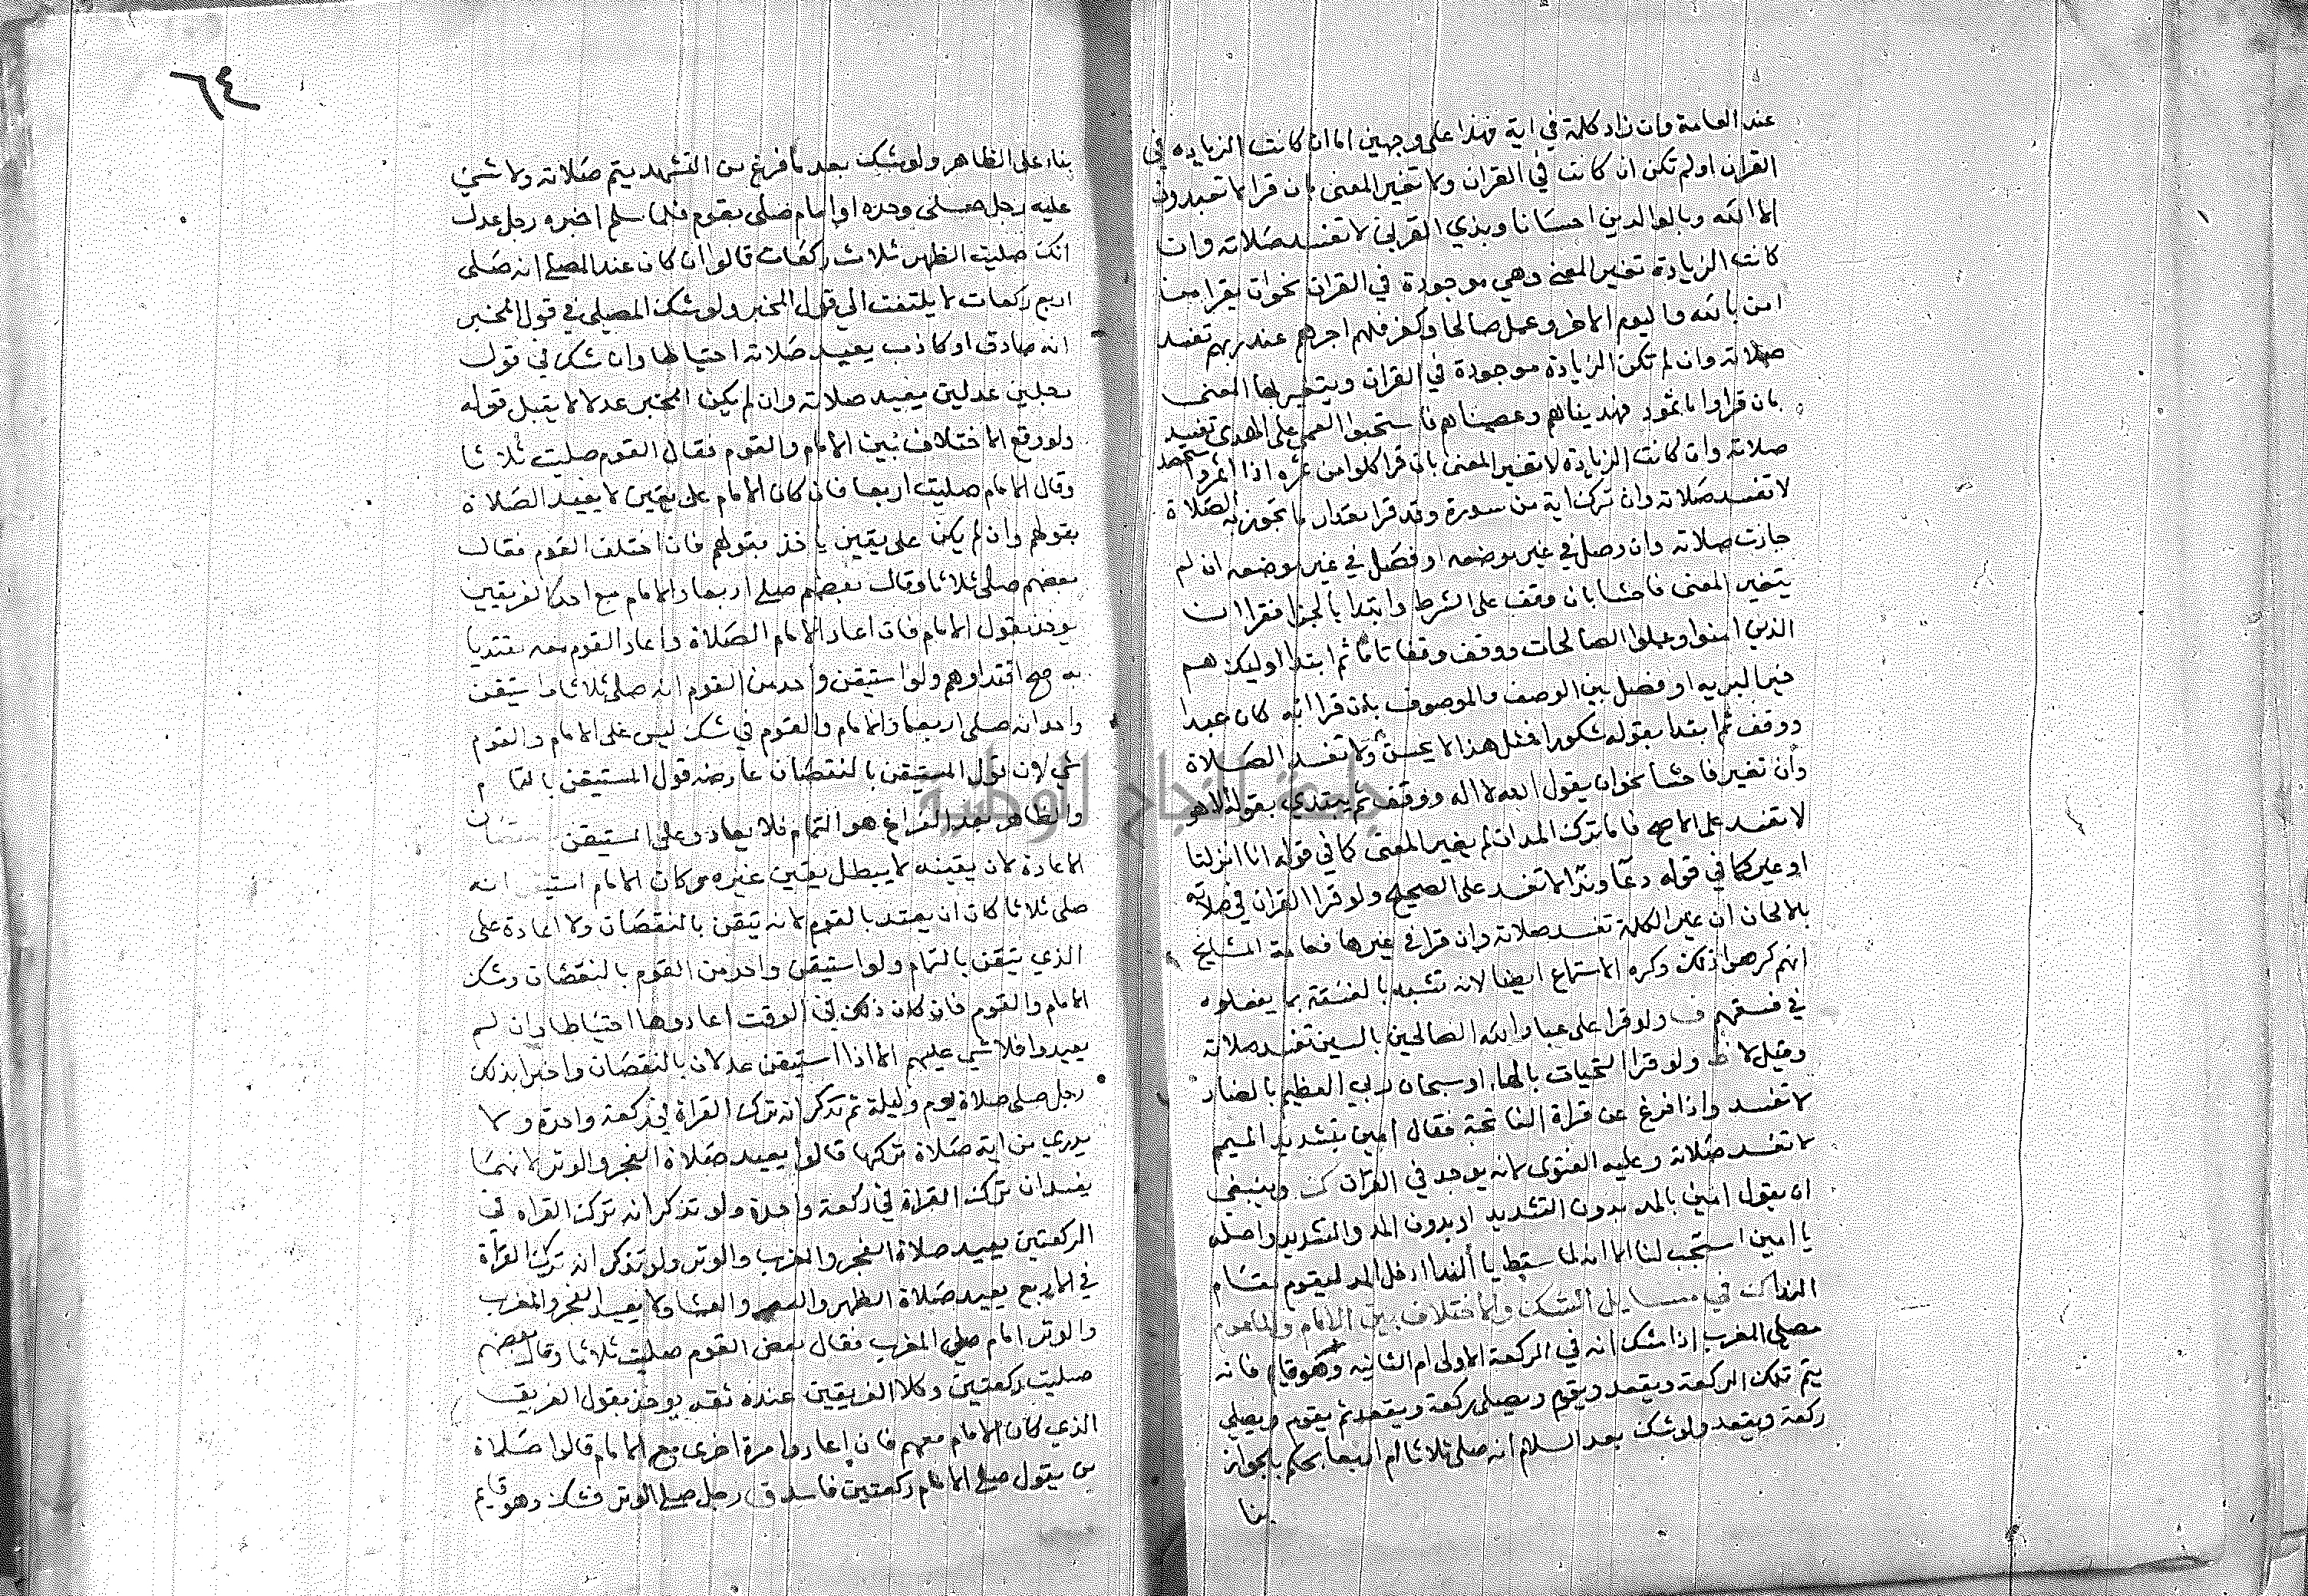 عند العامة وان زاد كلمة في اية فهذا على وجهين اما ان كانت الزيادة في
القران اولم تكن ان كانت في القران ولا تغير المعنى بان قرا لا تعبدون
الا الله وبالوالدين احسانا وبذي القربى لا تفسد صلاته وان
كانت الزيادة تغير المعنى وهي موجودة في القران نحو ان يقرا من
امن بالله واليوم الاخر وعمل صالحا وكفر فلهم اجرهم عند ربهم تفسد
صلاته وان لم تكن الزيادة موجودة في القران ويتغير بها المعنى
بان قرا واما ثمود فهديناهم وعصيناهم فاستحبوا العمى على الهدى تفسد
صلاته وان كانت الزيادة لا تغير المعنى بان قرا كلوا من ثمره اذا اثمر واستحصد
لا تفسد صلاته وان ترك اية من سورة وقد قرا مقدار ما تجوز به الصلاة
جازت صلاته وان وصل في غير موضعه او فصل في غير موضعه ان لم
يتغير المعنى فاحشا بان وقف على الشرط وابتدا بالجزا فقرا ان
الذين امنوا وعملوا الصالحات ووقف وقفا تاما ثم ابتدا اوليك هم
خير البريه او فصل بين الوصف والموصوف بان قرا انه كان عبدا
ووقف ثم ابتدا بقوله شكورا فمثل هذا لا يحسن ولا تفسد الصلاة
وان تغير فاحشا نحو ان يقول الله لا اله ووقف ثم يبتدي بقوله الا هو
لا تفسد على الاصح فاما بترك المد ان لم يغير المعنى كما في قوله انا انزلنا
او غير كما في قوله دعا وندا لا تفسد على الصحيح ولو قرا القران في صلاته
بالالحان ان غير الكلمة تفسد صلاته وان قرا في غيرها فعامة المشايخ
انهم كرهوا ذلك وكره الاستماع ايضا لانه تشبه بالفسقة بما يفعلوه
في فسقهم ف ولو قرا على عباد الله الصالحين بالسين تفسد صلاته
وقيل لا ولو قرا التحيات بالهاء او سبحان ربي العظيم بالضاد
لا تفسد واذا فرغ عن قراة الفاتحة فقال امين بتشديد الميم
لا تفسد صلاته وعليه الفتوى لانه يوجد في القران وينبغي
ان يقول امين بالمد بدون التشديد او بدون المد والتشديد واصله
يا امين استجب لنا الا انه لما سقط يا الندا ادخل المد ليقوم مقام
الندا في مسايل الشك والاختلاف بين الامام والماموم
مصلي المغرب اذا شك انه في الركعة الاولى ام الثانيه وهو قايم فانه
يتم تلك الركعة ويقعد ويقوم ويصلي ركعة ويقعد ثم يقوم ويصلي
ركعة ويقعد ولو شك بعد السلام انه صلى ثلاثا ام اربعا بحكم بالجواز
بنا
٦٤
بناء على الظاهر ولو شك بعد ما فرغ من التشهد يتم صلاته ولا شي
عليه رجل صلى وحده او امام صلى بقوم فلما سلم اخبره رجل عدل
انك صليت الظهر ثلاث ركعات قالوا ان كان عند المصلي انه صلى
اربع ركعات لا يلتفت الى قول المخبر ولو شك المصلي في قول المخبر
انه صادق او كاذب يعيد صلاته احتياطا وان شك في قول
رجلين عدلين يعيد صلاته وان لم يكن المخبر عدلا لا يقبل قوله
ولو وقع الاختلاف بين الامام والقوم فقال القوم صليت ثلاثا
وقال الامام صليت اربعا فان كان الامام على يقين لا يعيد الصلاة
بقولهم وان لم يكن على يقين ياخذ بقولهم فان اختلف القوم فقال
بعضهم صلى ثلاثا وقال بعضهم صلى اربعا والامام مع احد الفريقين
يوخذ بقول الامام فان اعاد الامام الصلاة واعاد القوم معه مقتديا
به صح اقتداوهم ولو استيقن واحد من القوم انه صلى ثلاثا واستيقن
واحد انه صلى اربعا والامام والقوم في شك ليس على الامام والقوم
شي لان قول المستيقن بالنقصان عارضه قول المستيقن بالتمام
والظاهر بعد الفراغ هو التمام فلا يعاد وعلى المستيقن
الاعادة لان يقينه لا يبطل بيقين غيره ولو كان الامام استيقن انه
صلى ثلاثا كان ان يعتد بالقوم لانه تيقن بالنقصان ولا اعادة على
الذي تيقن بالتمام ولو استيقن واحد من القوم بالنقصان وشك
الامام والقوم فان كان ذلك في الوقت اعادوها احتياطا وان لم
يعيدوا فلا شي عليهم الا اذا استيقن عدلان بالنقصان واخبرا بذلك
رجل صلى صلاة يوم وليلة ثم تذكر انه ترك القراة في ركعة واحدة ولا
يدري من اية صلاة تركها قالوا يعيد صلاة الفجر والوتر لانهما
يفسدان بترك القراة في ركعة واحدة ولو تذكر انه ترك القراة في
الركعتين يعيد صلاة الفجر والمغرب والوتر ولو تذكر انه ترك القراة
في الاربع يعيد صلاة الظهر والعصر والعشا ولا يعيد الفجر والمغرب
والوتر امام صلى المغرب فقال بعض القوم صليت ثلاثا وقال بعضهم
صليت ركعتين وكلا الفريقين عنده ثقه يوخذ بقول الفريق
الذي كان الامام معهم فان اعادوا مرة اخرى مع الامام قالوا صلاة
من يقول صلى الامام ركعتين فاسدة رجل صلى الوتر فشك وهو قايم
جامعة النجاح الوطنية